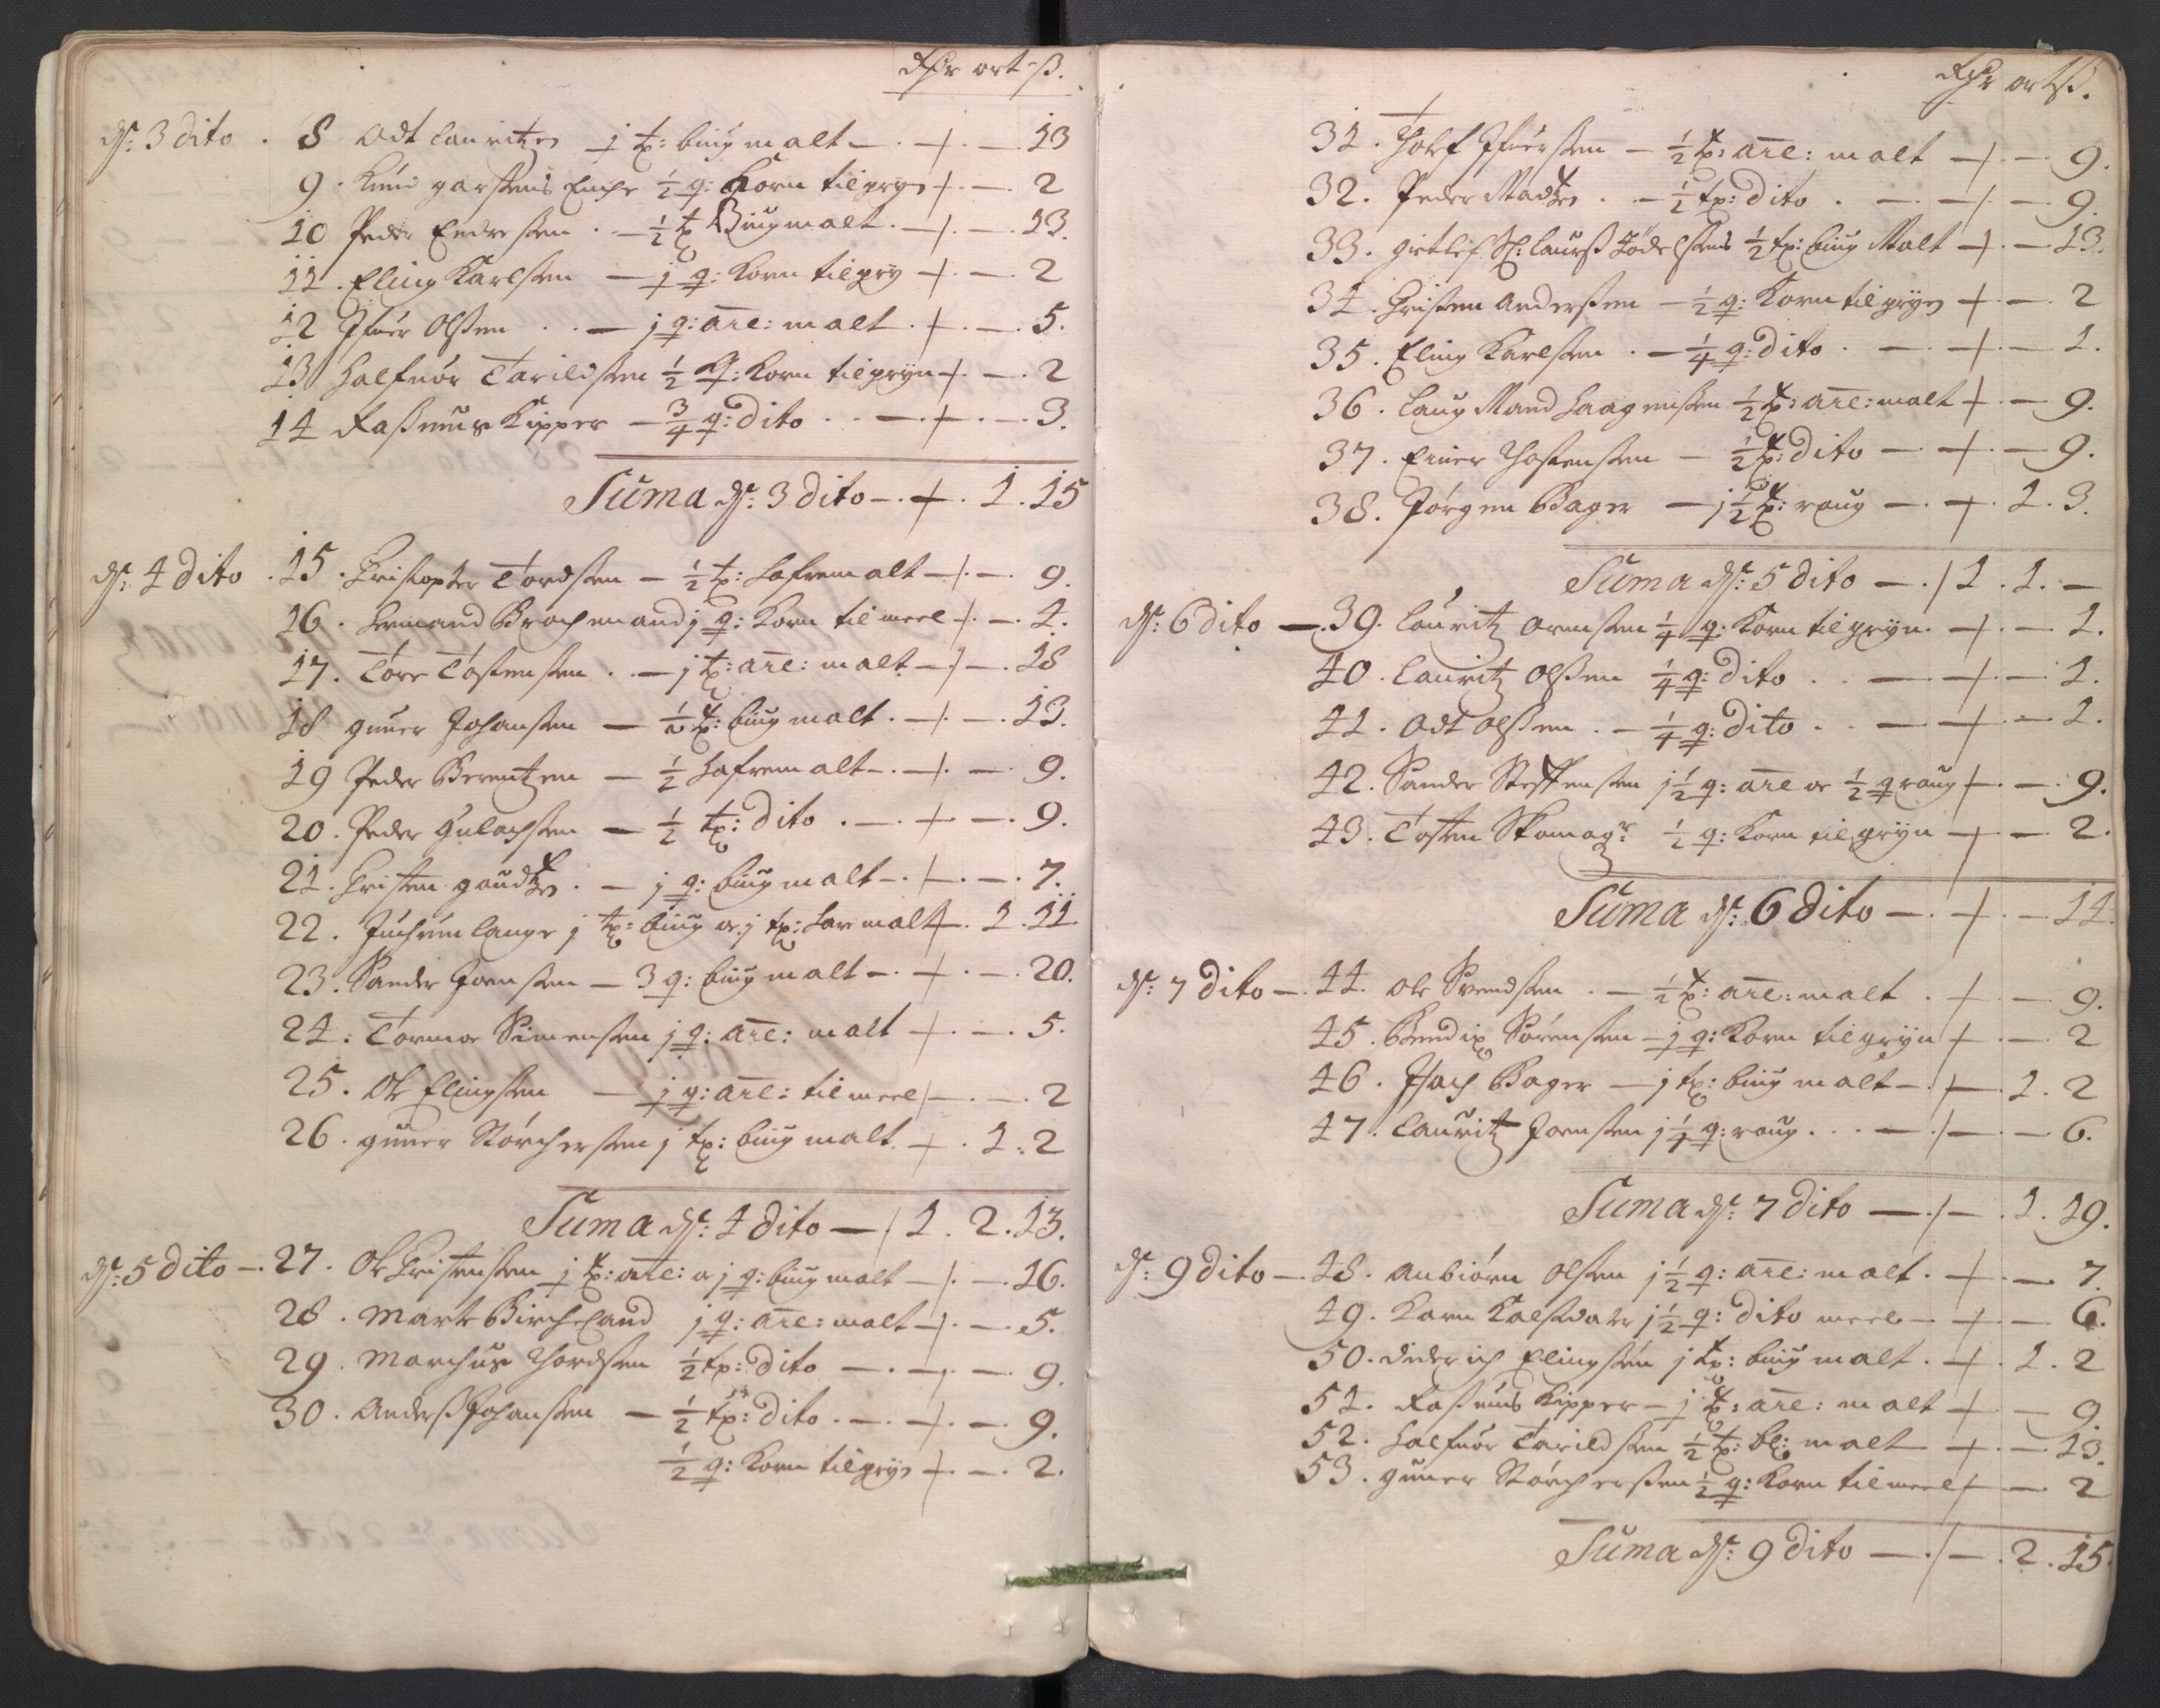 Rdr ort ß.
dt: 3 dito . 8 Odt Lauritzen j tp: biug malt — . + . — 13
9 . Knud garstens Enche ½ q: Korn til gryn + . — . 2
10 Peder Endresen . — ½ tp Biug malt . — + . — . 13.
11 . Eling Karlsen — j q: Korn til gry + . — . 2
12 Ifuer Olsen . . — j q: are: malt . + . — . 5.
13 Halfuor Tarildsen ½ q: Korn til gryn + . — . 2
14 Rasmus Kipper — ¾ q: dito . . — . + . — . 3.
Suma dt: 3 dito — . + . 1 . 15
dt: 4 dito . 15 . Christopher Tordsen — ½ tp: hafremalt — + . — . 9.
16 . Hermand Brochmand j q: Korn til meel + . — . 4.
17 . Tore Tostensen . . — j tp: are: malt — + — . 18
18 guner Johansen — ½ tp: biug malt . — + . — . 13.
19 Peder Berentzen — ½ hafremalt — . — + . — . 9.
20 . Peder Gulachsen — ½ tp: dito . — . + — . 9.
21 . Christen goudtzen . — j q: biug malt — . + . — . 7.
22 . Juchum Lange j tp: biug oc j tp: har malt + . 1 . 11
23 . Sander Joensen — 3 q: biug malt — . + . — . 20.
24 : Tormoe Simensen j q: are: malt + . — . 5.
25 . Ole Elingsen — j q: are: til meel + — . — . 2
26 . guner Storchersen j tp: biug malt . + . 1 : 2
Suma dt: 4 dito — / 1 . 2 . 13.
dt: 5 dito — . 27 . Ole Christensen j tp: are: oc j q: biug malt — + . — . 16.
28 . Marte Bircheland j q: are: malt — + . — . 5.
29 . Marchus Thordsen ½ tp: dito — . — + — . 9.
30 . Anders Johansen — ½ tp: dito . — . + . — . 9.
½ q: Korn til gryn + . — . 2.
Rdr ort ß.
31 . Tholf Ifuersen — ½ tp: are: malt — + . — . 9.
32 . Peder Madtzen . — ½ tp: dito . — . — + . — 9.
33 . Sl: Laurß ½ tp: biug Malt — + . — 13.
34 . Christen Andersen — ½ q: Korn til gryn + . — . 2
35 . Eling Karlsen . — ¼ q: dito . — . — + . — . 1.
36 . Laug Mand Haagensen ½ tp: are: malt + . — 9.
37 . Einer Thostensen — ½ tp: dito — . + . — 9.
38 . Jørgen Bager — j ½ tp: roug — . + . 1 . 3.
Suma dt: 5 dito — . / 1 . 1 . —
dt: 6 dito — . 39 . Lauritz Orensen ¼ q: Korn til gryn . + . — . 1.
40 . Lauritz Olsen ¼ q: dito . . — + . — . 1.
41 . Odt Olsen . — ¼ q: dito . . — + . — 1.
42 . Sander Steffensen j ½ q: are oc ½ q roug + . — . 9.
43 . Tosten Skomagr ½ q: Korn til gryn — + — . 2.
Suma dt: 6 dito — . + . — 14.
dt: 7 dito — . 44 . Ole Svendsen . — ½ tp: are: malt . + . — . 9.
45 . Bendix Sørensen — j q: Korn til gryn + . — . 2
46 . Isach Bager — j tp: biug malt — . + . 1 . 2
47 . Lauritz Joensen j ¼ q: roug . . . — + — . — 6.
Suma dt: 7 dito — . / — . 1 . 19.
dt: 9 dito — . 48 . Anbiørn Olsen j ½ q: are: malt . — + . — 7.
49 . Karn j ½ q: dito meel — + . — 6.
50 . Diderich Elingsen j tp: biug malt . — + . 1 . 2
51 . Rasmus Kipper — j tp: are: malt — + — 9.
52 . Halfuor Tarildsen ½ tp: bl: malt — + . — 13.
53 . guner Storchersen ½ q: Korn til meel + — . 2
Suma dt: 9 dito — . / — . 2 . 15.